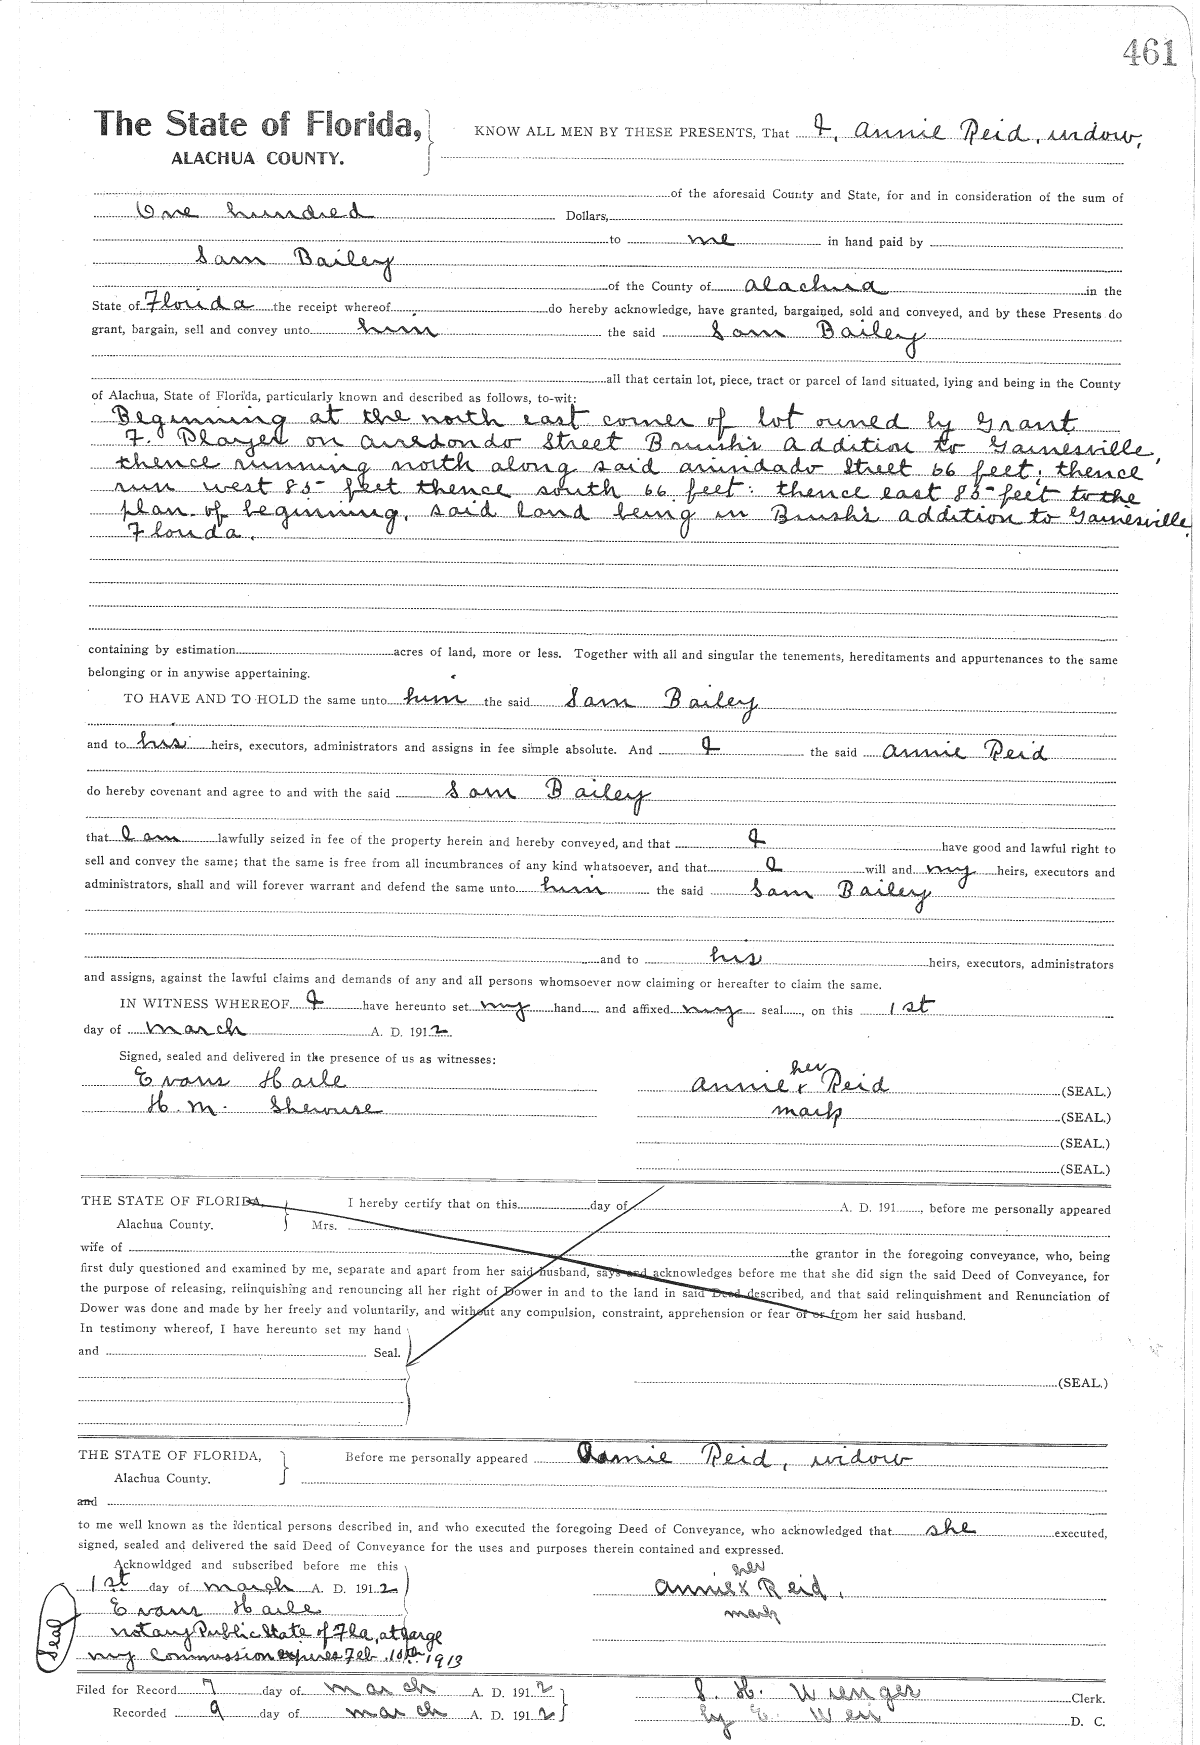 461
The State of Florida,
ALACHUA COUNTY.
KNOW ALL MEN BY THESE PRESENTS, That I, Annie Reid, widow,
of the aforesaid County and State, for and in consideration of the sum of
One hundred Dollars,
to me in hand paid by
Sam Bailey
of the County of Alachua in the
State of Florida the receipt whereof do hereby acknowledge, have granted, bargained, sold and conveyed, and by these Presents do
grant, bargain, sell and convey unto him the said Sam Bailey
all that certain lot, piece, tract or parcel of land situated, lying and being in the County
of Alachua, State of Florida, particularly known and described as follows, to-wit:
Beginning at the north east corner of lot owned by Grant
F. Player on Arredondo Street Brush's Addition to Gainesville,
thence running north along said arundado Street 66 feet; thence
run west 85 feet thence south 66 feet: thence east 85 feet to the
plan of beginning. said land being in Brush's addition to Gainesville,
Florida.
containing by estimation acres of land, more or less. Together with all and singular the tenements, hereditaments and appurtenances to the same
belonging or in anywise appertaining.
TO HAVE AND TO HOLD the same unto him the said Sam Bailey
and to his heirs, executors, administrators and assigns in fee simple absolute. And I the said Annie Reid
do hereby covenant and agree to and with the said Sam Bailey
that I am lawfully seized in fee of the property herein and hereby conveyed, and that I have good and lawful right to
sell and convey the same; that the same is free from all incumbrances of any kind whatsoever, and that I will and my heirs, executors and
administrators, shall and will forever warrant and defend the same unto him the said Sam Bailey
and to his heirs, executors, administrators
and assigns, against the lawful claims and demands of any and all persons whomsoever now claiming or hereafter to claim the same.
IN WITNESS WHEREOF I have hereunto set my hand and affixed my seal, on this 1st
day of March A. D. 1912
Signed, sealed and delivered in the presence of us as witnesses:
her
Evans Haile Annie x Reid (SEAL.)
H. M. Sherouse mark (SEAL.)
(SEAL.)
(SEAL.)
THE STATE OF FLORIDA, I hereby certify that on this day of A. D. 191 , before me personally appeared
Alachua County. Mrs.
wife of the grantor in the foregoing conveyance, who, being
first duly questioned and examined by me, separate and apart from her said husband, says and acknowledges before me that she did sign the said Deed of Conveyance, for
the purpose of releasing, relinquishing and renouncing all her right of Dower in and to the land in said Deed described, and that said relinquishment and Renunciation of
Dower was done and made by her freely and voluntarily, and without any compulsion, constraint, apprehension or fear of or from her said husband.
In testimony whereof, I have hereunto set my hand
and Seal.
(SEAL.)
THE STATE OF FLORIDA, Before me personally appeared Annie Reid, widow
Alachua County.
and
to me well known as the identical persons described in, and who executed the foregoing Deed of Conveyance, who acknowledged that she executed,
signed, sealed and delivered the said Deed of Conveyance for the uses and purposes therein contained and expressed.
Acknowldged and subscribed before me this
her
1st day of March A. D. 1912 Annie x Reid.
Evans Haile mark
Notary Public State of Fla, at large
My Commission expires Feb. 10th 1913
Seal
Filed for Record 7 day of March A. D. 1912 S. H. Wienges Clerk.
Recorded 9 day of March A. D. 1912 by E. D. C.